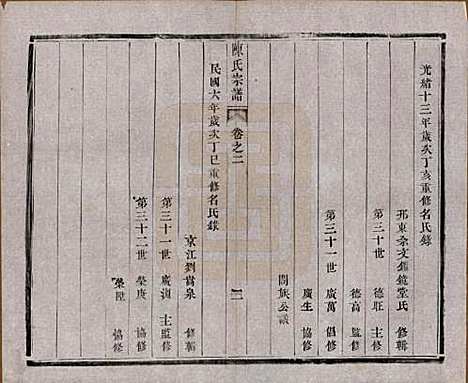 光緒十三年歲次丁亥重修名氏錄
邗東余文鑣鏡堂氏 修輯
第三十世 德旺 主修
德高 監修
第三十一世 廣萬 倡修
廣生 協修
闔族公議
陳氏宗譜
卷之二
二
民國六年歲次丁巳重修名氏錄
京江劉貴泉 修輯
第三十一世 廣湏 主監修
第三十二世 榮庚 協修
榮 協修